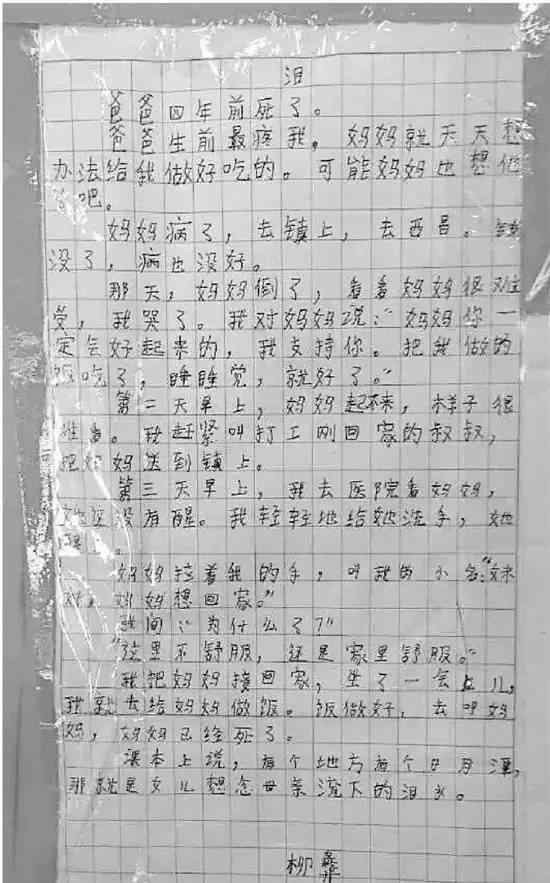 泪
爸爸四年前死了。
爸爸生前最疼我，妈妈就天天想
办法给我做好吃的。可能妈妈也想他
了吧。
妈妈病了，去镇上，去西昌。钱
没了，病也没好。
那天，妈妈倒了，看着妈妈很难
受，我哭了。我对妈妈说：“妈妈你一
定会好起来的，我支持你。把我做的
饭吃了，睡睡觉，就好了。”
第二天早上，妈妈起不来，样子很
难看。我赶紧叫打工刚回家的叔叔，
把妈妈送到镇上。
第三天早上，我去医院看妈妈，
她还没有醒。我轻轻地给她洗手，她
醒了。
妈妈拉着我的手，叫我的小名：“妹
妹，妈妈想回家。”
我问：“为什么了？”
“这里不舒服，还是家里舒服。”
我把妈妈接回家，坐了一会儿，
我就去给妈妈做饭。饭做好，去叫妈
妈，妈妈已经死了。
课本上说，有个地方有个日月潭，
那就是女儿想念母亲流下的泪水。
柳彝